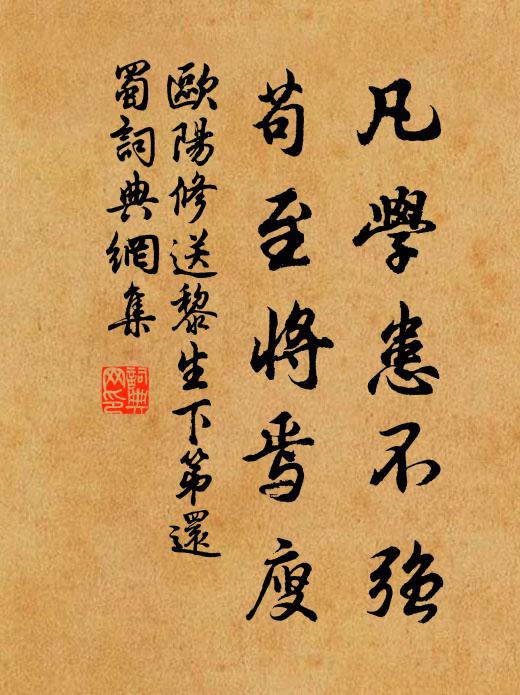 凡學患不强
苟至將焉廋
歐陽修送黎生下第還
蜀詞典網集
詞典網印